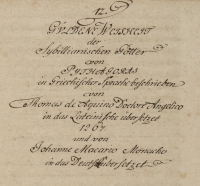 12.
GÜLDENE WEISHEIT
der
Sybillianischen Götter
von
PYTHAGORAS
in Griechischer Sprache beschrieben
von
Thomas de Aquino Doctore Angelico
in das Lateinische übersetzet
1267
und von
Johanne Macario
in das Deutsch übersetzet